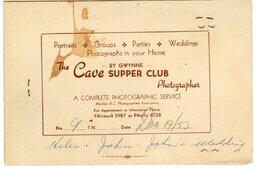 Portraits • Groups • Parties • Weddings
Photographs in your Home
The Cave SUPPER CLUB
— BY GWYNNE —
Photographer
A COMPLETE PHOTOGRAPHIC SERVICE
Member B.C. Photographers Association
For Appointment or Information Phone
FAirmont 2987 or PAcific 8728
No. 9 T.N. Date Dec 19/53
Helen & John - John's wedding